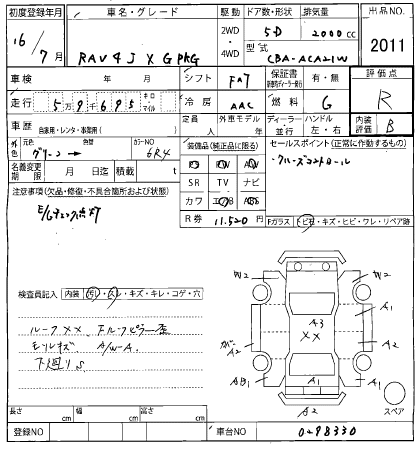 初度登録年月 車名・グレード 駆動 ドア数・形状 排気量 出品NO.
16/7月 RAV4J X G PKG 2WD・4WD 5D 2000cc 2011
型式 CBA-ACA21W
車検 年 月 シフト FAT 保証書 有・無 評価点
走行 5万9千695 キロ マイル 冷房 AAC 燃料 G R
車歴 自家用・レンタ・事業用( ) 定員 人 外車モデル 年 ディーラー・並行 ハンドル 左・右 内装評価 B
外色 元色 グリーン 色替 カラーNO 6R4
装備品(純正品に限る) セールスポイント(正常に作動するもの)
PS PW AW ・クルーズコントロール
名義変更期限 月 日迄 積載 t SR TV ナビ
カワ エアB ABS
注意事項(欠品・修復・不具合箇所および状態)
R券 11,520円
Fガラス トビ石・キズ・ヒビ・ワレ・リペア跡
W2 W2
A3 A1
XX
A2 A2
A1 A1
A2
スペア
検査員記入 内装 汚レ・スレ・キズ・キレ・コゲ・穴
ルーフXX
A/W-A
下廻りS
長さ cm 幅 cm 高さ cm
登録NO 車台NO 0298330